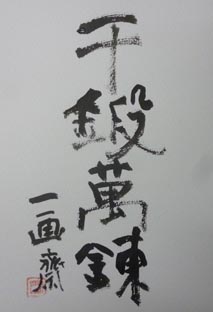 千鍛萬錬
一画齋